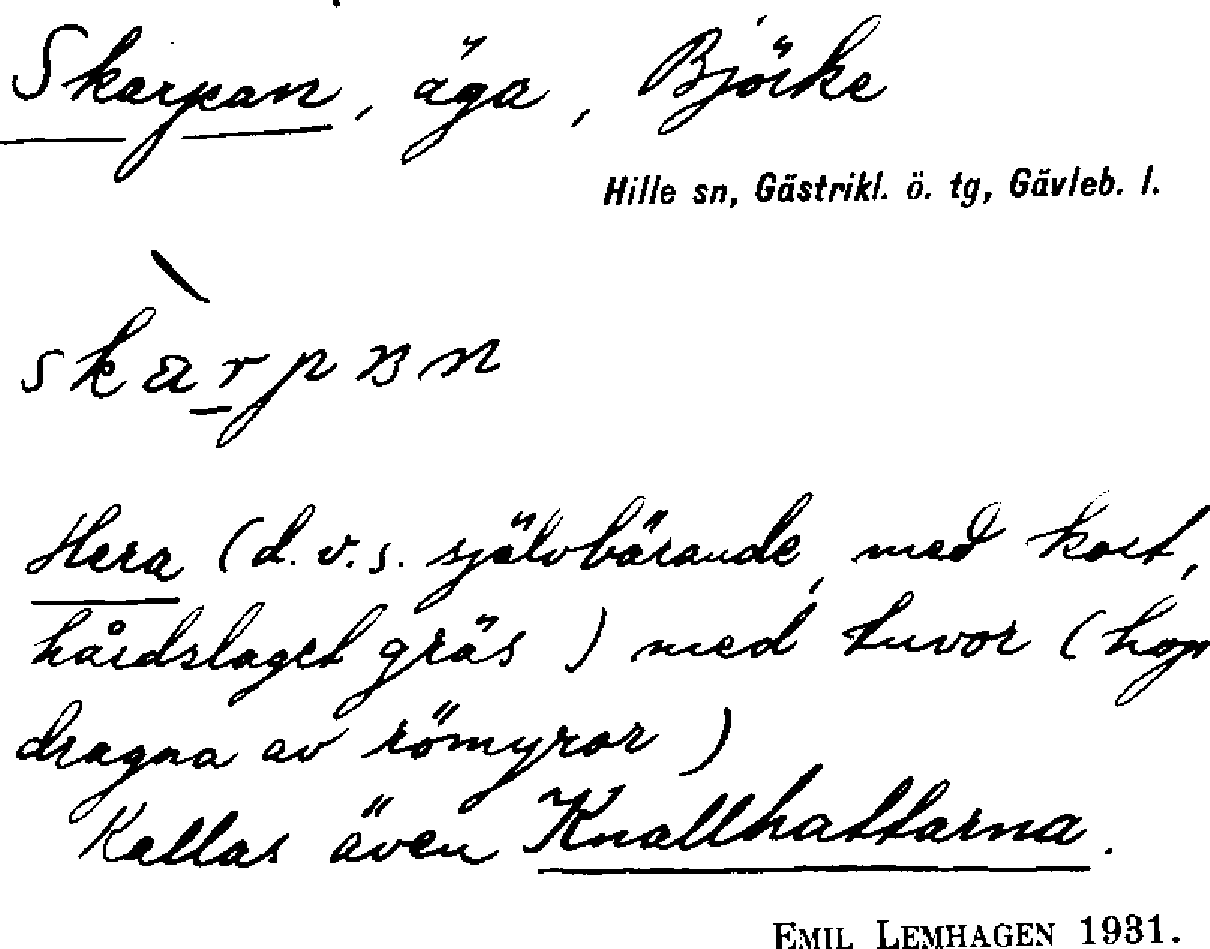 Skarpan, äga, Björke
Hille sn, Gästrikl. ö. tg, Gävleb. l.
skarpan
Hera (d.v.s. självbärande, med kort,
hårdslaget gräs) med tuvor (hop
dragna av römyror)
Kallas även Knallhattarna.
EMIL LEMHAGEN 1931.